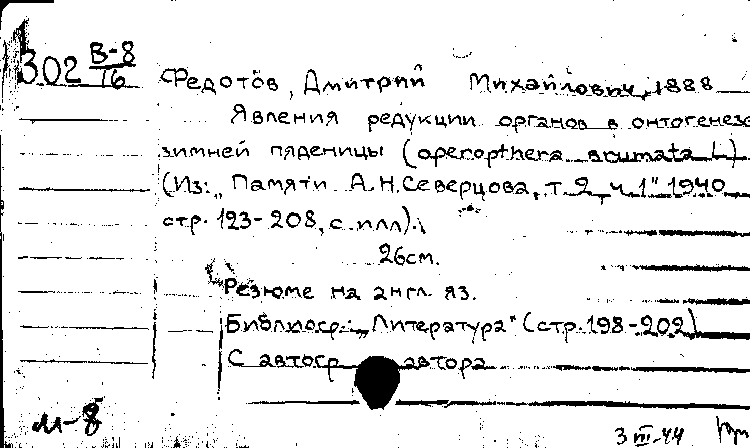 302 В-8
16
Федотов, Дмитрий Михайлович, 1888
Явления редукции органов в онтогенезе
зимней пяденицы (operopthera brumata L.)
(Из: „Памяти А.Н.Северцова, т. 2, ч. 1" 1940
стр. 123-208, с илл).
26см.
Резюме на англ. яз.
Библиогр.: „Литература" (стр. 198-202)
С автогр автора
м-8
3 III-44